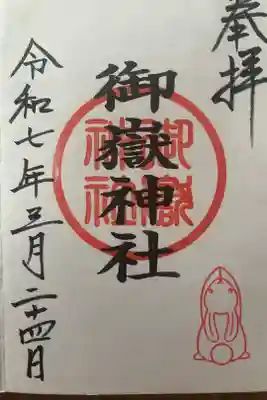 奉拝
御嶽神社
御嶽神社
令和七年三月二十四日